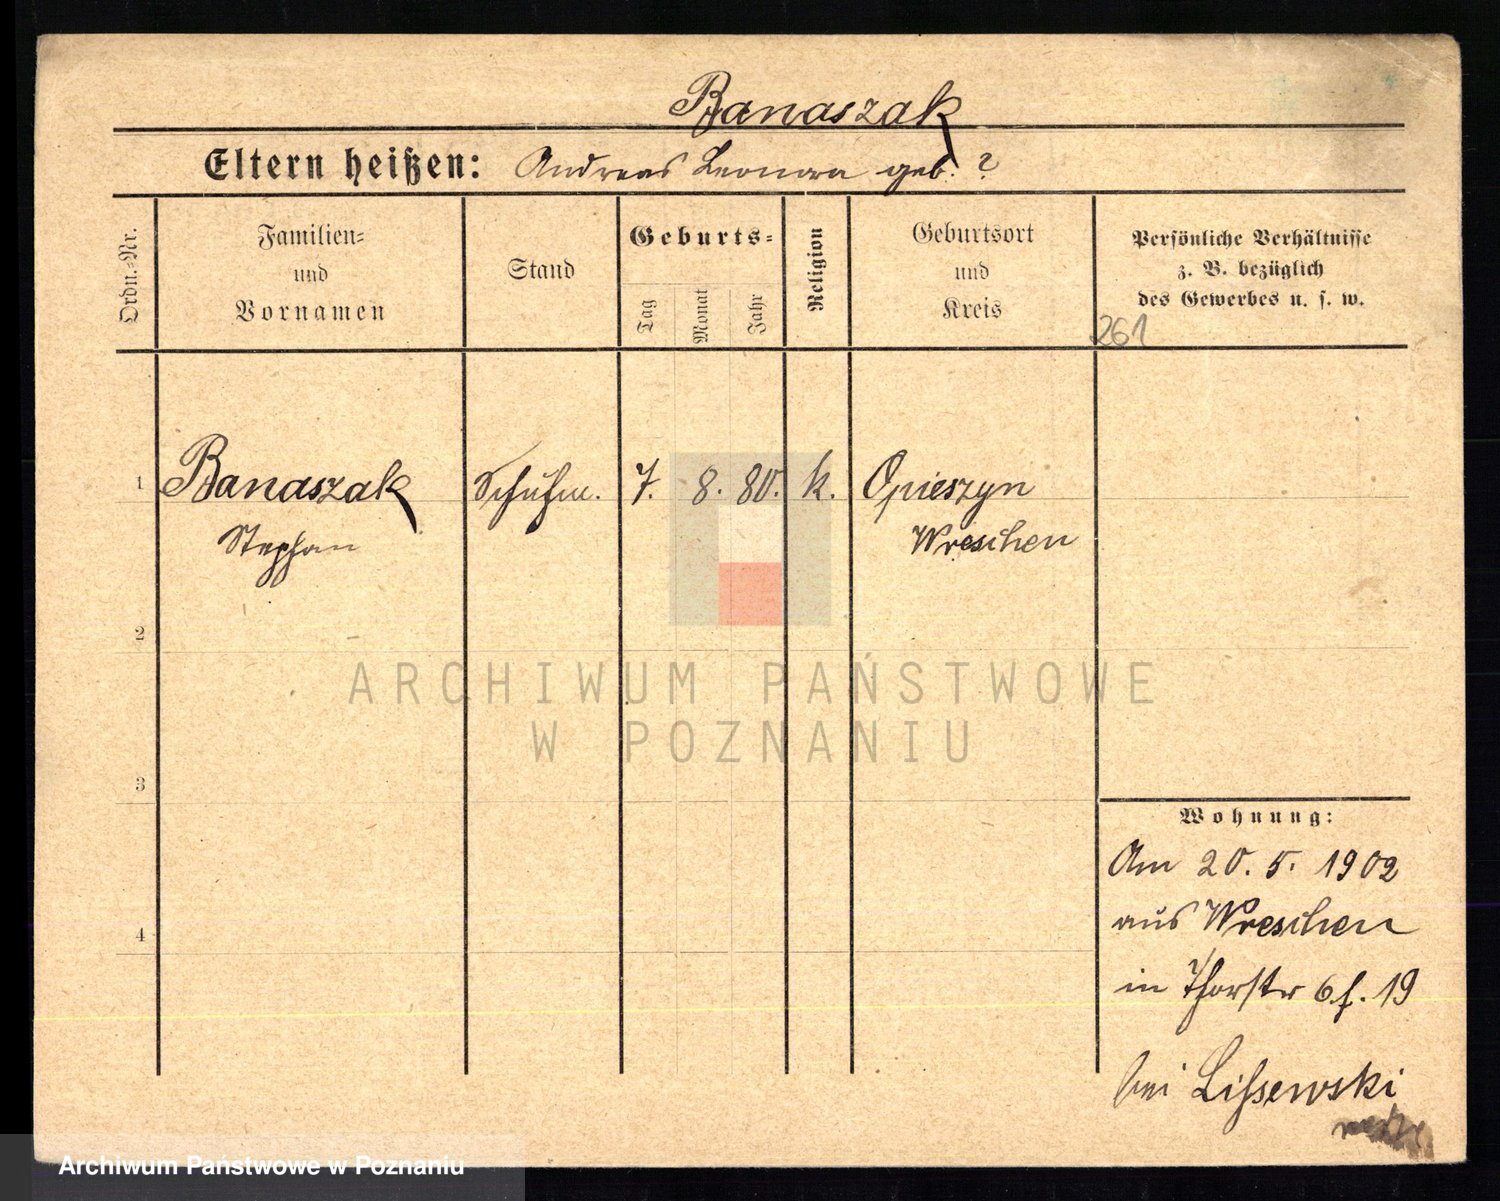 Banaszak
Eltern heißen: Andreas Leonora geb. ?
Ordn.-Nr.
Familien-
und
Vornamen
Stand
Geburts-
Tag
Monat
Jahr
Religion
Geburtsort
und
Kreis
Persönliche Verhältnisse
z. B. bezüglich
des Gewerbes u. s. w.
261
1 Banaszak Schuhm. 7. 8. 80. k. Opieszyn
Stephan Wreschen
2
ARCHIWUM PAŃSTWOWE
W POZNANIU
3
Wohnung:
Am 20. 5. 1902
4
aus Wreschen
in Thorstr 6 f. 19
bei Lissewski
Archiwum Państwowe w Poznaniu